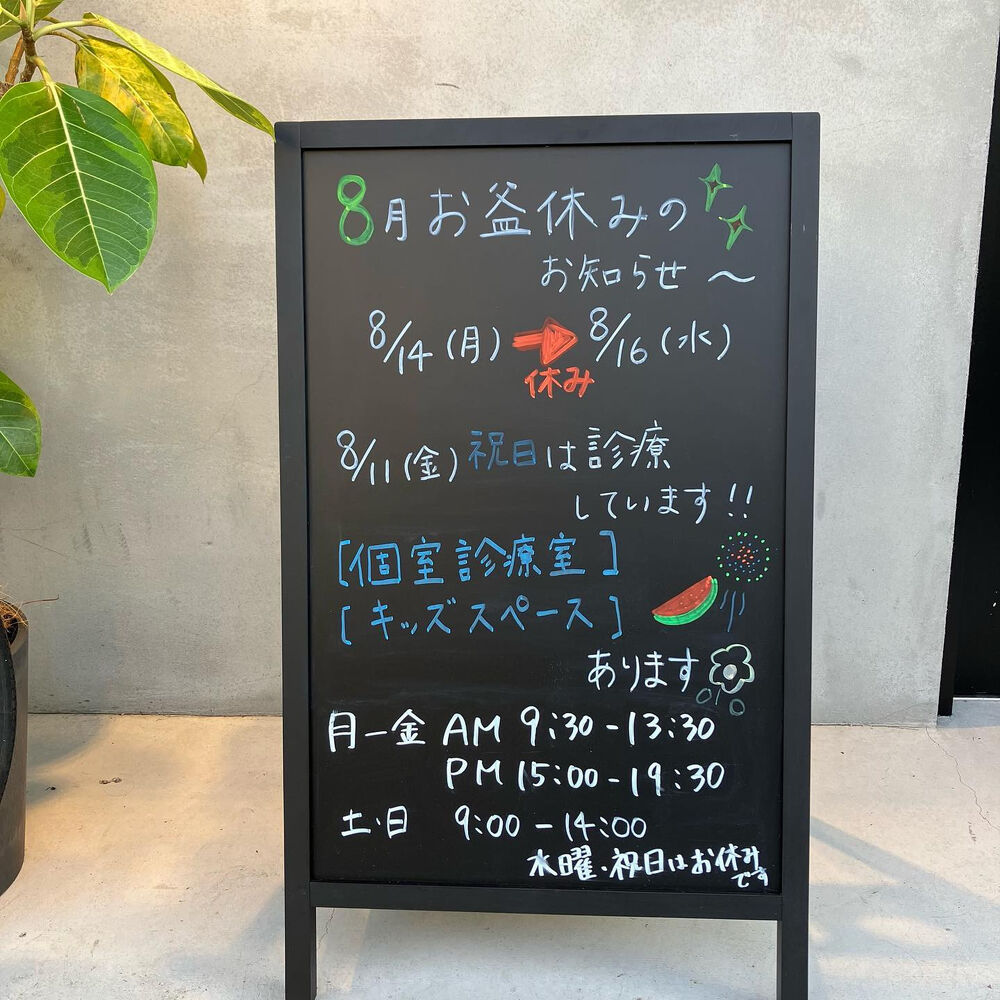 8月お盆休みの
お知らせ～
8/14(月)➡8/16(水)
休み
8/11(金)祝日は診療
しています!!
[個室診療室]
[キッズスペース]
あります
月-金 AM 9:30-13:30
PM 15:00-19:30
土・日 9:00-14:00
水曜・祝日はお休み
です